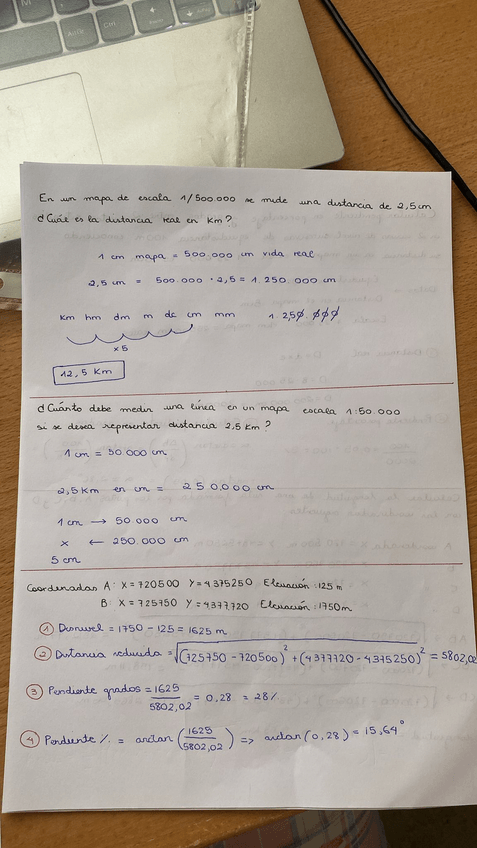 En un mapa de escala 1/500.000 se mide una distancia de 2,5 cm
¿Cuál es la distancia real en Km?
1 cm mapa = 500.000 cm vida real
2,5 cm = 500.000 · 2,5 = 1.250.000 cm
Km hm dm m dc cm mm 1.250.000
x5
12,5 Km
¿Cuánto debe medir una línea en un mapa escala 1:50.000
si se desea representar distancia 2,5 Km?
1 cm = 50.000 cm
2,5 Km en cm = 250.000 cm
1 cm → 50.000 cm
x ← 250.000 cm
5 cm
Coordenadas A: X = 720500 Y = 4375250 Elevación: 125 m
B: X = 725750 Y = 4377720 Elevación: 1750 m
① Desnivel = 1750 - 125 = 1625 m
② Distancia reducida = √(725750 - 720500)² + (4377720 - 4375250)² = 5802,02
③ Pendiente grados = 1625/5802,02 = 0,28 = 28%
④ Pendiente % = arctan (1625/5802,02) => arctan (0,28) = 15,64°